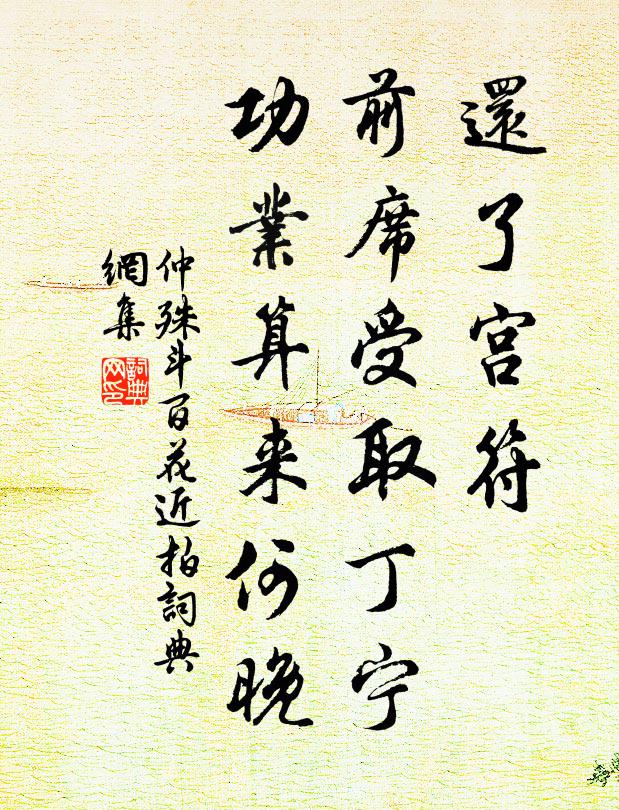 還了宫符
前席受取丁宁
功業算来何晚
仲殊斗百花近拍詞典
網集
詞典
网印